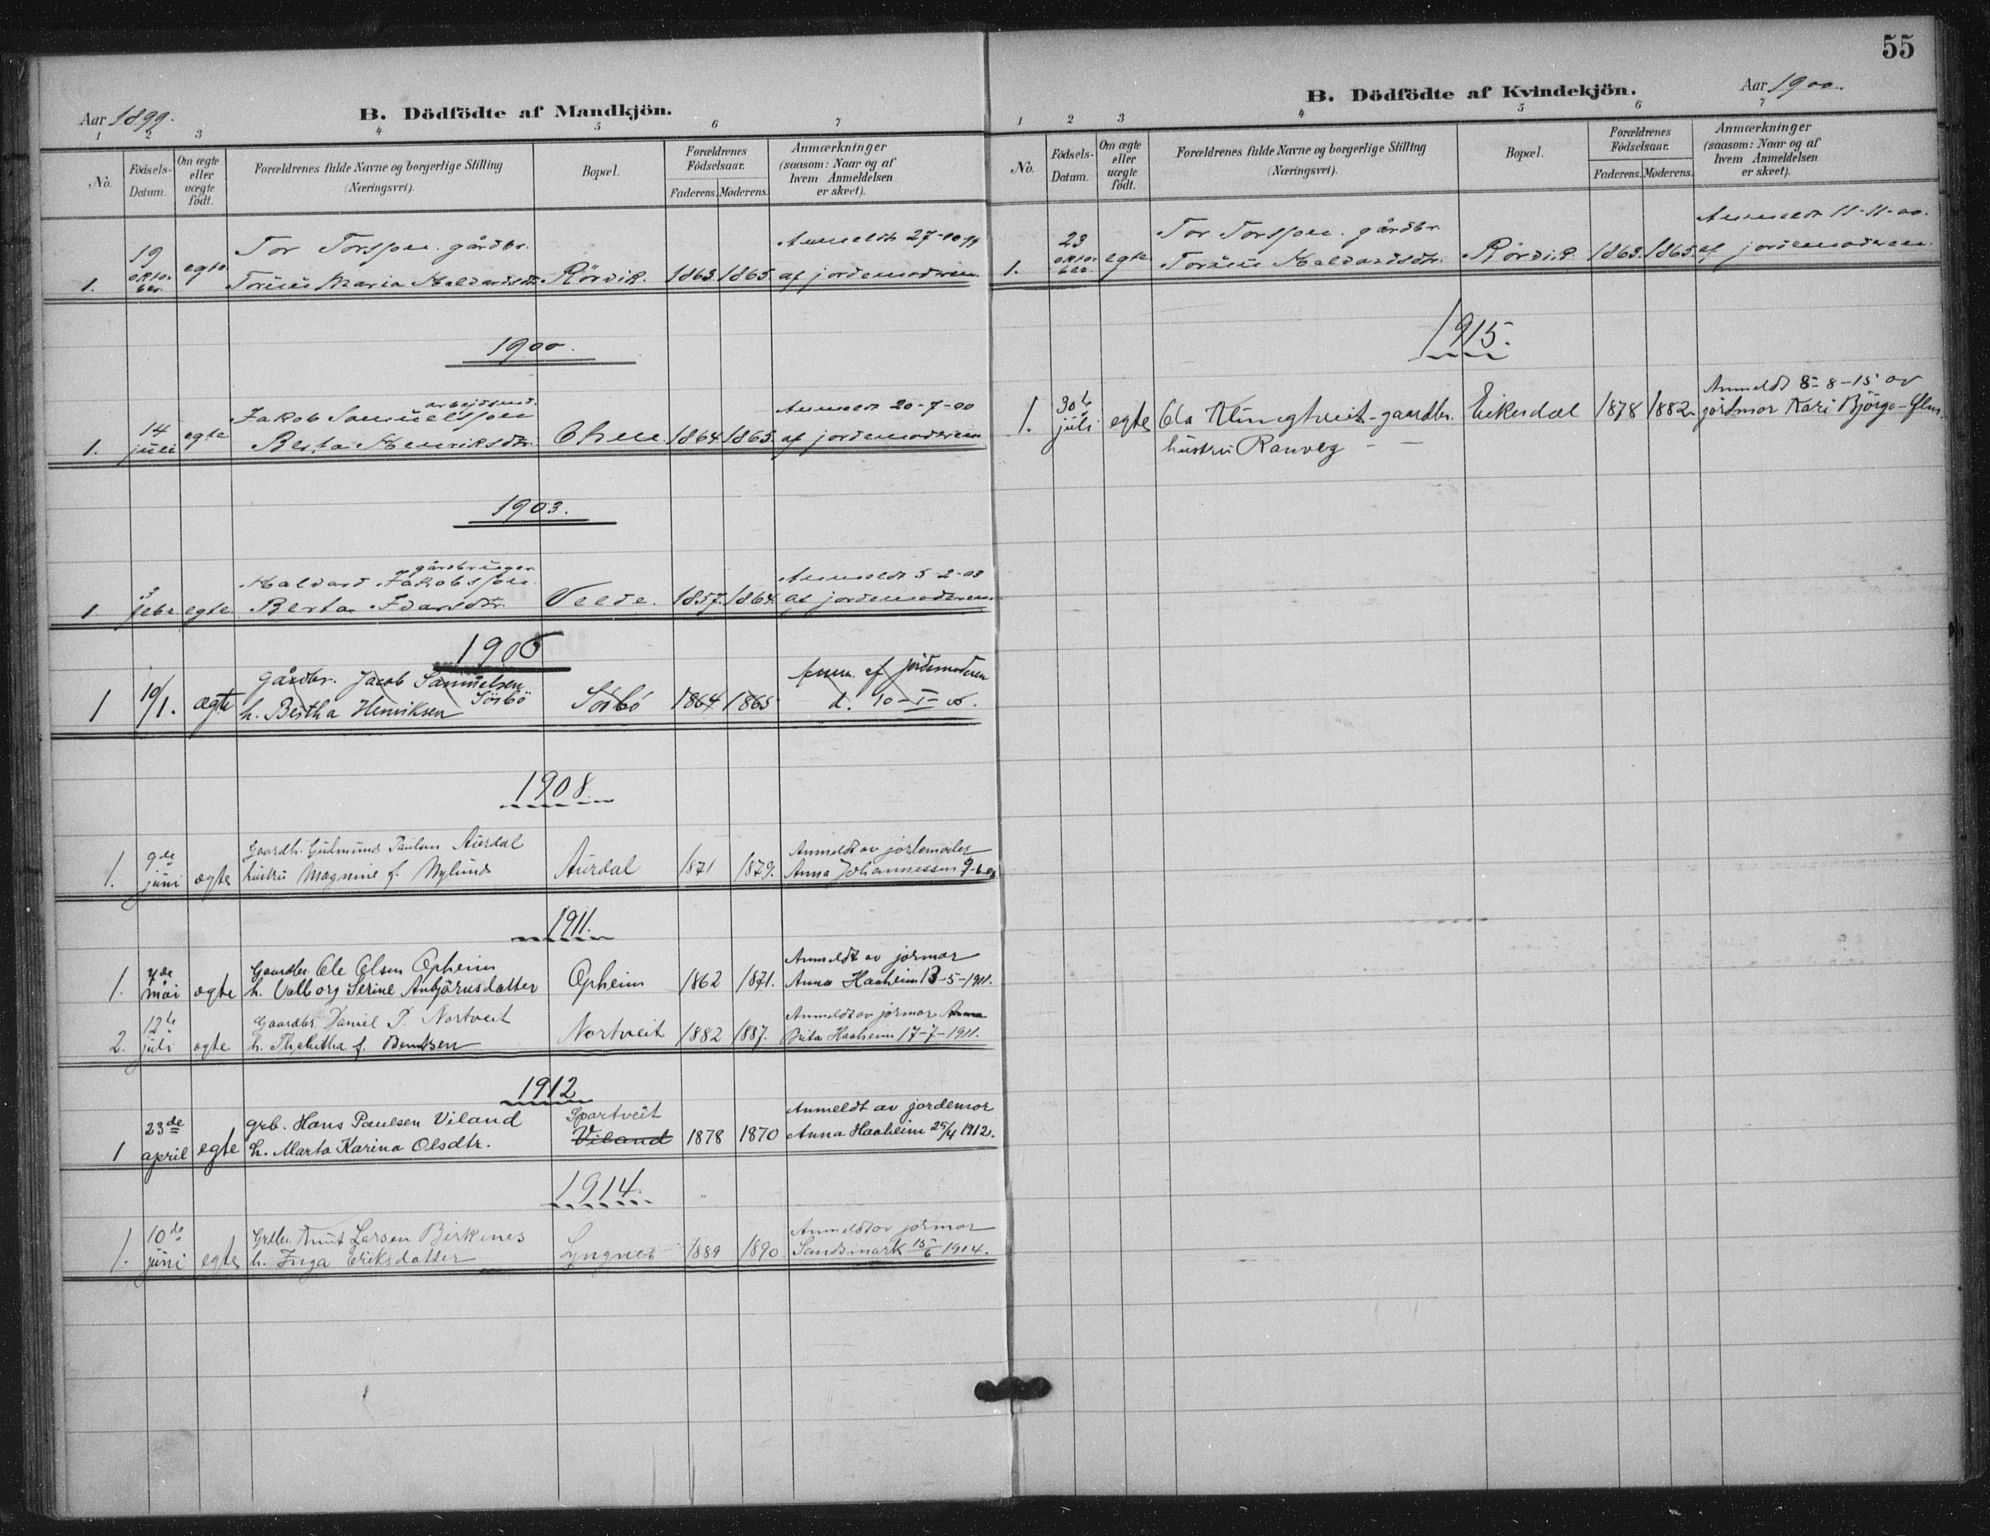 55
Aar 1899.
B. Dödfödte af Mandkjön.
1 2 3 4 5 6 7
No.
Födsels-
Datum.
Om ægte
eller
uægte
födt.
Forældrenes fulde Navne og borgerlige Stilling
(Næringsvei).
Bopæl.
Forældrenes
Födselsaar.
Faderens. Moderens.
Anmærkninger
(saasom: Naar og af
hvem Anmeldelsen
er skeet).
19
oktober
Tor Torssen. gårdbr.
Anmeldt 27-10-99
1. egte Maria Halvardsdtr. Rörvik. 1863 1865 af jordemoderen
1900.
arbejdsmd.
14
juli
Jakob Samuelssen
Anmeldt 20-7-00
1. egte Berta Henriksdtr. 1864 1865. af jordemoderen
1903.
3
febr.
gårdbruger
Halvard Jakobssen
Anmeldt 5-2-03
1 egte Berta Ivarsdtr. Velde. 1857. 1864. af jordemoderen.
1906
Gårdbr. Jacob Samuelsen
af jordemoderen
1 10/1. ægte h. Bertha Henriksen Sörbö Sörbö 1864 1865 d. 10-I-06.
1908.
9de
juni
Gaardb. Gulmund Paulsen Aurdal
Anmeldt av jordemoder
1. ægte hustru Magnine f. Mylund Aurdal 1871 1879. Anna Johannessen 9-6-08
1911.
7de
mai
Gaardbr. Ole Olsen Opheim
Anmeldt av jormor
1. ægte h. Valborg Serine Anbjörnsdatter Opheim 1862 1871. Anna Haaheim 13-5-1911.
12te
juli
Gaardbr. Daniel P. Nortveit
Anmeldt av jormor Anna
2. ægte h. f. Bentsen Nortveit 1882 1887. Brita Haaheim 17-7-1911.
1912
23de
april
grb. Hans Paulsen Viland
Spartveit
Anmeldt av jordemor
1 egte h. Marta Karina Olsdtr. Viland 1878 1870 Anna Haaheim 25/4 1912.
1914.
10de
juni
Grdbr. Knut Larsen Birkenes
Anmeldt av jormor
1. egte h. Inga Eriksdatter Lyngnes 1889 1890 Sandsmark 15/6 1914.
B. Dödfödte af Kvindekjön.
Aar 1900.
1 2 3 4 5 6 7
No.
Födsels-
Datum.
Om ægte
eller
uægte
födt.
Forældrenes fulde Navne og borgerlige Stilling
(Næringsvei).
Bopæl.
Forældrenes
Födselsaar.
Faderens. Moderens.
Anmærkninger
(saasom: Naar og af
hvem Anmeldelsen
er skeet).
23
oktober
Tor Torssen. gårdbr.
Anmeldt 11-11-00.
1. egte Halvardsdtr. Rörvik 1863. 1865. af jordemoderen.
1915.
30te
juli
Anmeldt 8-8-15 av
1. egte Ola Klingtveit - gaardbr. Eikesdal 1878 1882 jordmor Kari Björgo-
hustru Ranveg - —